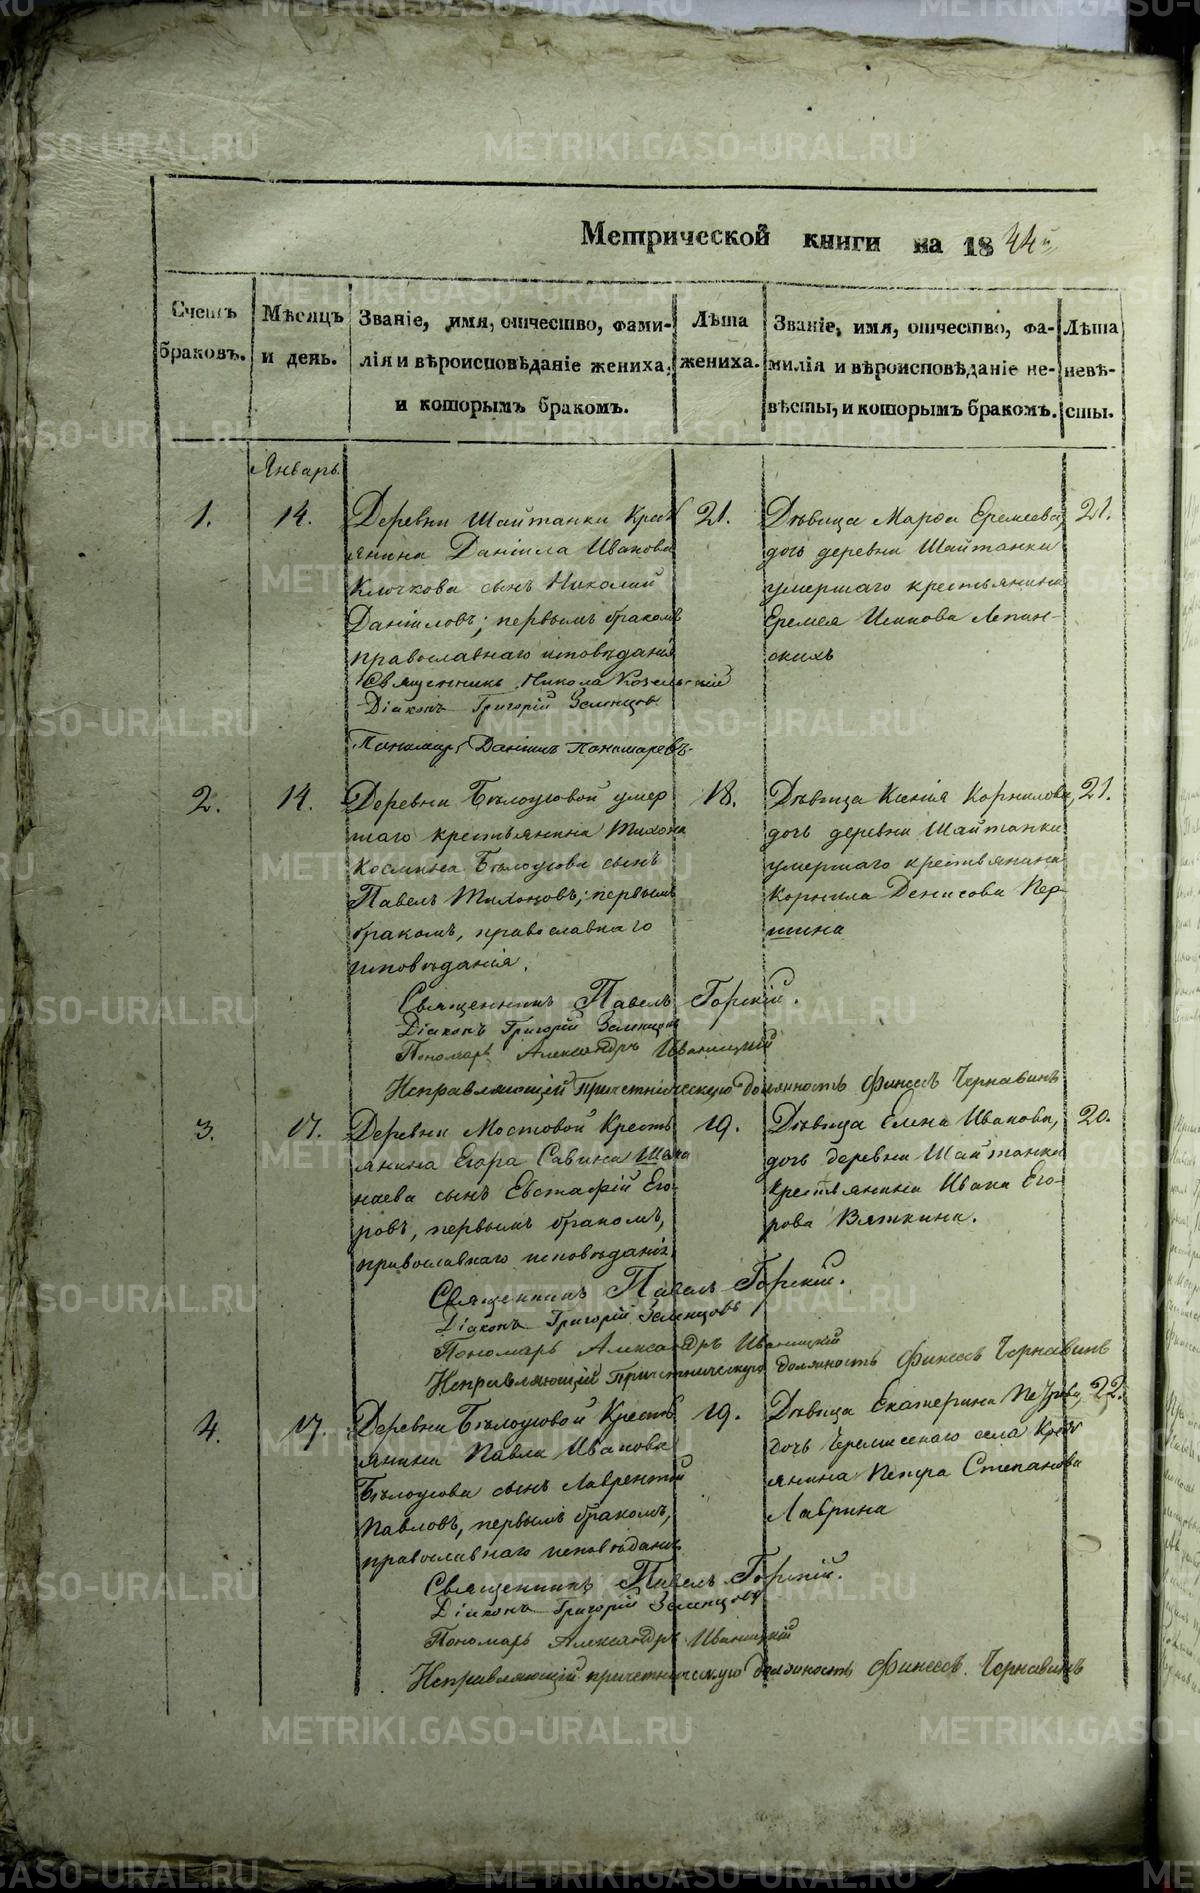 Метрической книги на 1844й
Счетъ браковъ.
Мѣсяцъ и день.
Званіе, имя, отчество, фами-
лія и вѣроисповѣданіе жениха,
и которымъ бракомъ.
Лѣта
жениха.
Званіе, имя, отчество, фа-
милія и вѣроисповѣданіе не-
вѣсты, и которымъ бракомъ.
Лѣта
невѣ-
сты.
Январь
1.
14.
Деревни Шайтанки Крест
янина Даніила Иванова
Клочкова сынъ Николай
Даніиловъ; первымъ бракомъ
православнаго исповѣданія
21.
Дѣвица Марѳа Еремеева,
дочь деревни Шайтанки
умершаго крестьянина
Еремея
Лепин-
скихъ
21.
Священникъ Никола Козельскій
Діаконъ Григорій Зеленцовъ
Пономарь Даніилъ Пономаревъ
2.
14.
Деревни Бѣлоусовой умер
шаго крестьянина Тихона
Космина Бѣлоусова сынъ
Павелъ Тихоновъ; первымъ
бракомъ, православнаго
исповѣданія.
18.
Дѣвица Ксенія Корнилова,
дочь деревни Шайтанки
умершаго крестьянина
Корнила Денисова Пер-
шина
21.
Священникъ Павелъ Горскій.
Діаконъ Григорій Зеленцовъ
Пономарь Александръ Иваницкій
Исправляющій Причетническую должность Финеесъ Чернавинъ
3.
17.
Деревни Мостовой Кресть
янина Егора Савина
наева сынъ Евстафій Его-
ровъ, первымъ бракомъ,
православнаго исповѣданія.
19.
Дѣвица Елена Иванова,
дочь деревни Шайтанки
крестьянина Ивана Его-
рова Вяткина.
20.
Священникъ Павелъ Горскій.
Діаконъ Григорій Зеленцовъ
Пономарь Александръ Иваницкій
Исправляющій Причетническую должность Финеесъ Чернавинъ
4.
17.
Деревни Бѣлоусовой Кресть
янина Павла Иванова
Бѣлоусова сынъ Лаврентій
Павловъ, первымъ бракомъ,
православнаго исповѣданія
19.
Дѣвица Екатерина Петрова,
дочь Черемисскаго села Крест
янина Петра Степанова
Лаврина
22.
Священникъ Павелъ Горскій.
Діаконъ Григорій Зеленцовъ
Пономарь Александръ Иваницкій
Исправляющій причетническую должность Финеесъ Чернавинъ
METRIKI.GASO-URAL.RU